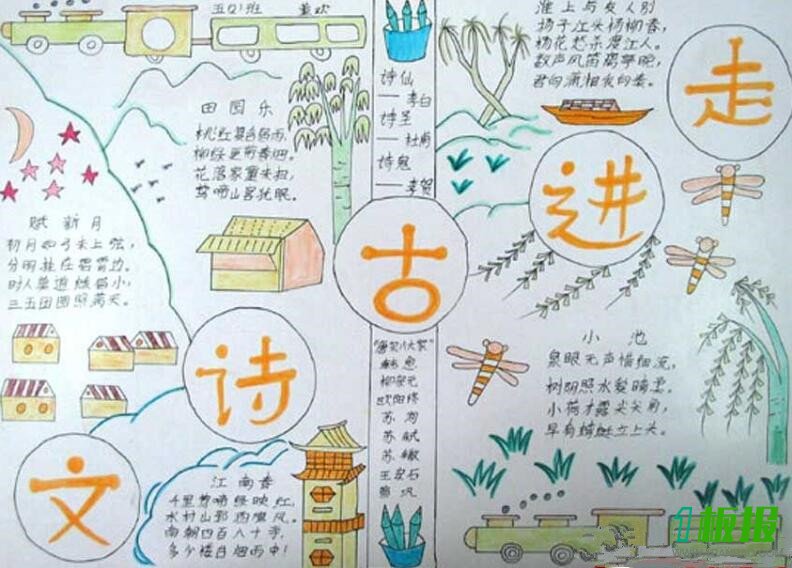 走
进
古
诗
文
淮上与友人别
扬子江头杨柳春,
杨花愁杀渡江人。
数声风笛离亭晚,
君向潇湘我向秦。
诗仙
——李白
诗圣
——杜甫
诗鬼
——李贺
田园乐
桃红复含宿雨,
柳绿更带春烟。
花落家童未扫,
莺啼山客犹眠。
赋新月
初月如弓未上弦,
分明挂在碧霄边。
时人莫道蛾眉小,
三五团圆照满天。
"唐宋八大家"
韩愈
柳宗元
欧阳修
苏洵
苏轼
苏辙
王安石
曾巩
小池
泉眼无声惜细流,
树阴照水爱晴柔。
小荷才露尖尖角,
早有蜻蜓立上头。
江南春
千里莺啼绿映红,
水村山郭酒旗风。
南朝四百八十寺,
多少楼台烟雨中!
板报